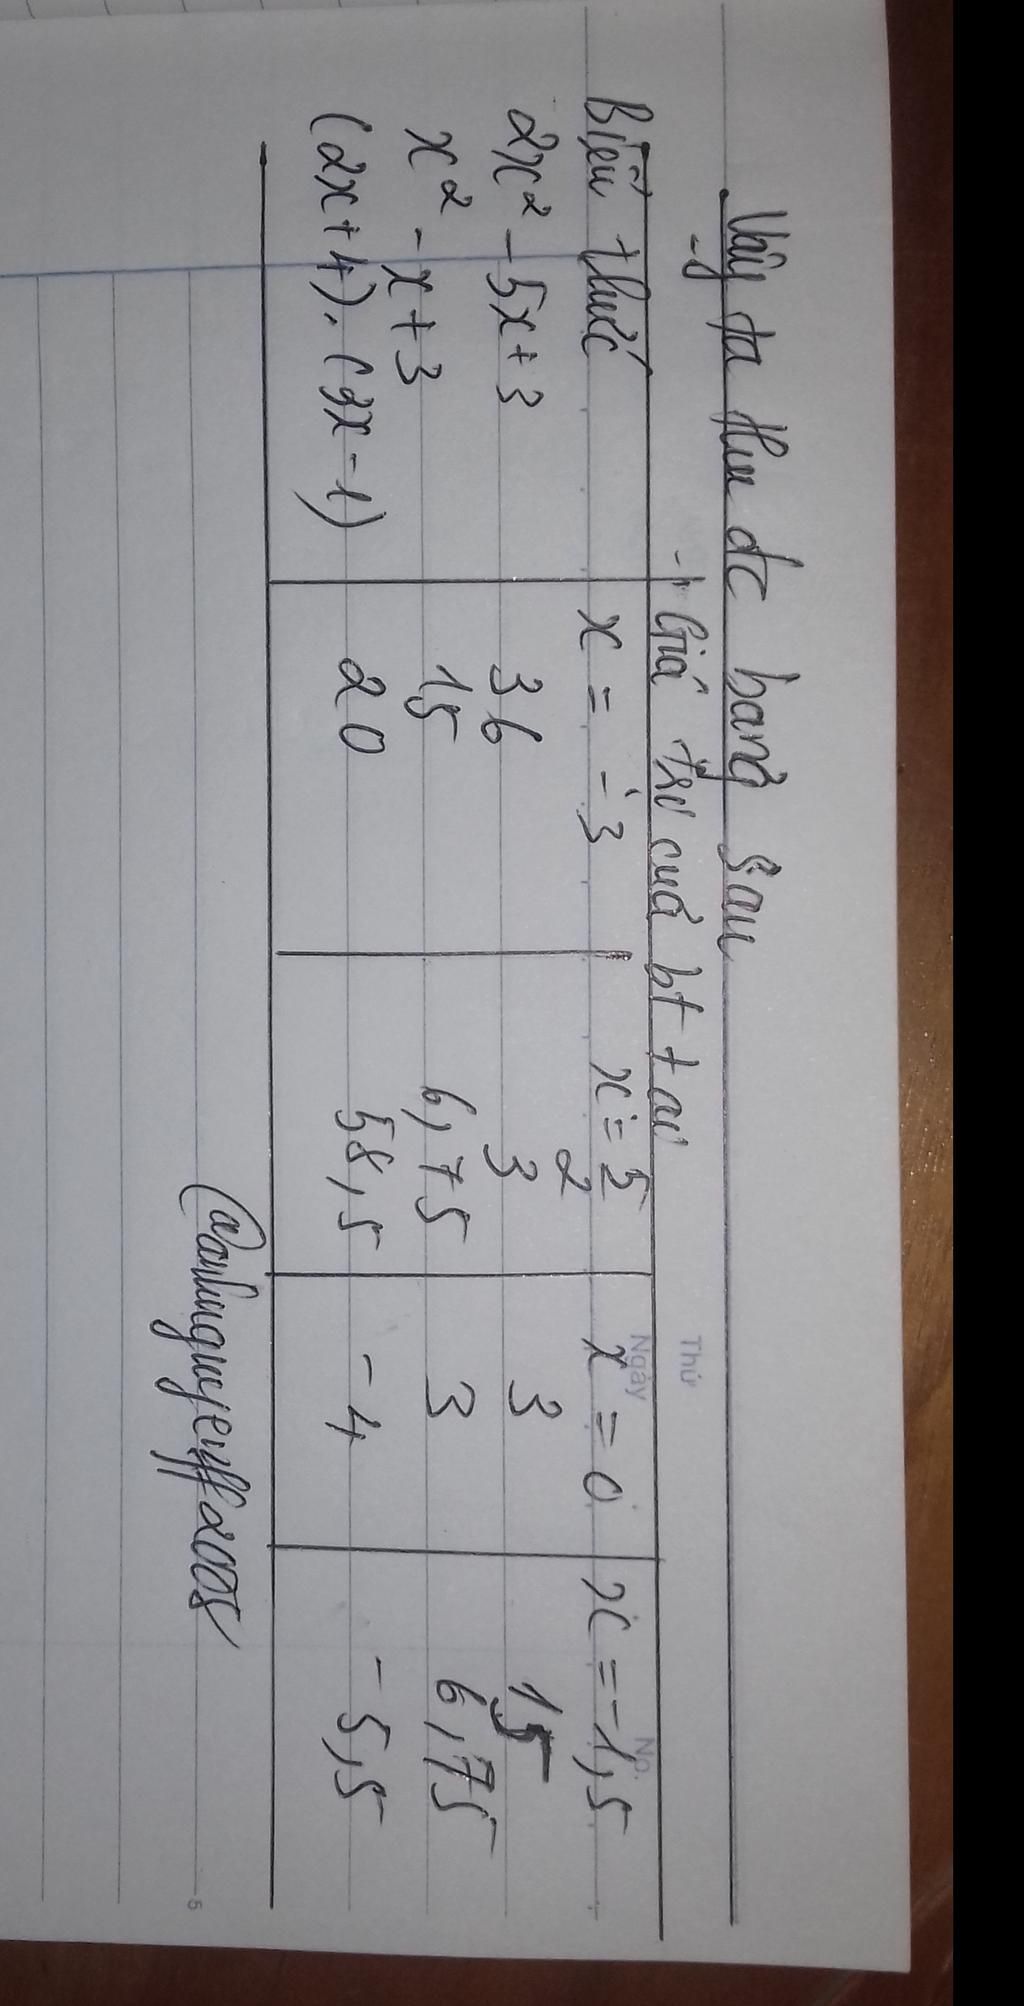 Vậy ta thu đc bảng sau
→ Giá trị của bt tại
Biểu thức x = -3 x = 5/2 x = 0 x = -1,5
2x² - 5x + 3 36 3 3 15
x² - x + 3 15 6,75 3 6,75
(2x + 4). (3x - 1) 20 58,5 -4 -5,5
Thứ
Ngày
No.
5